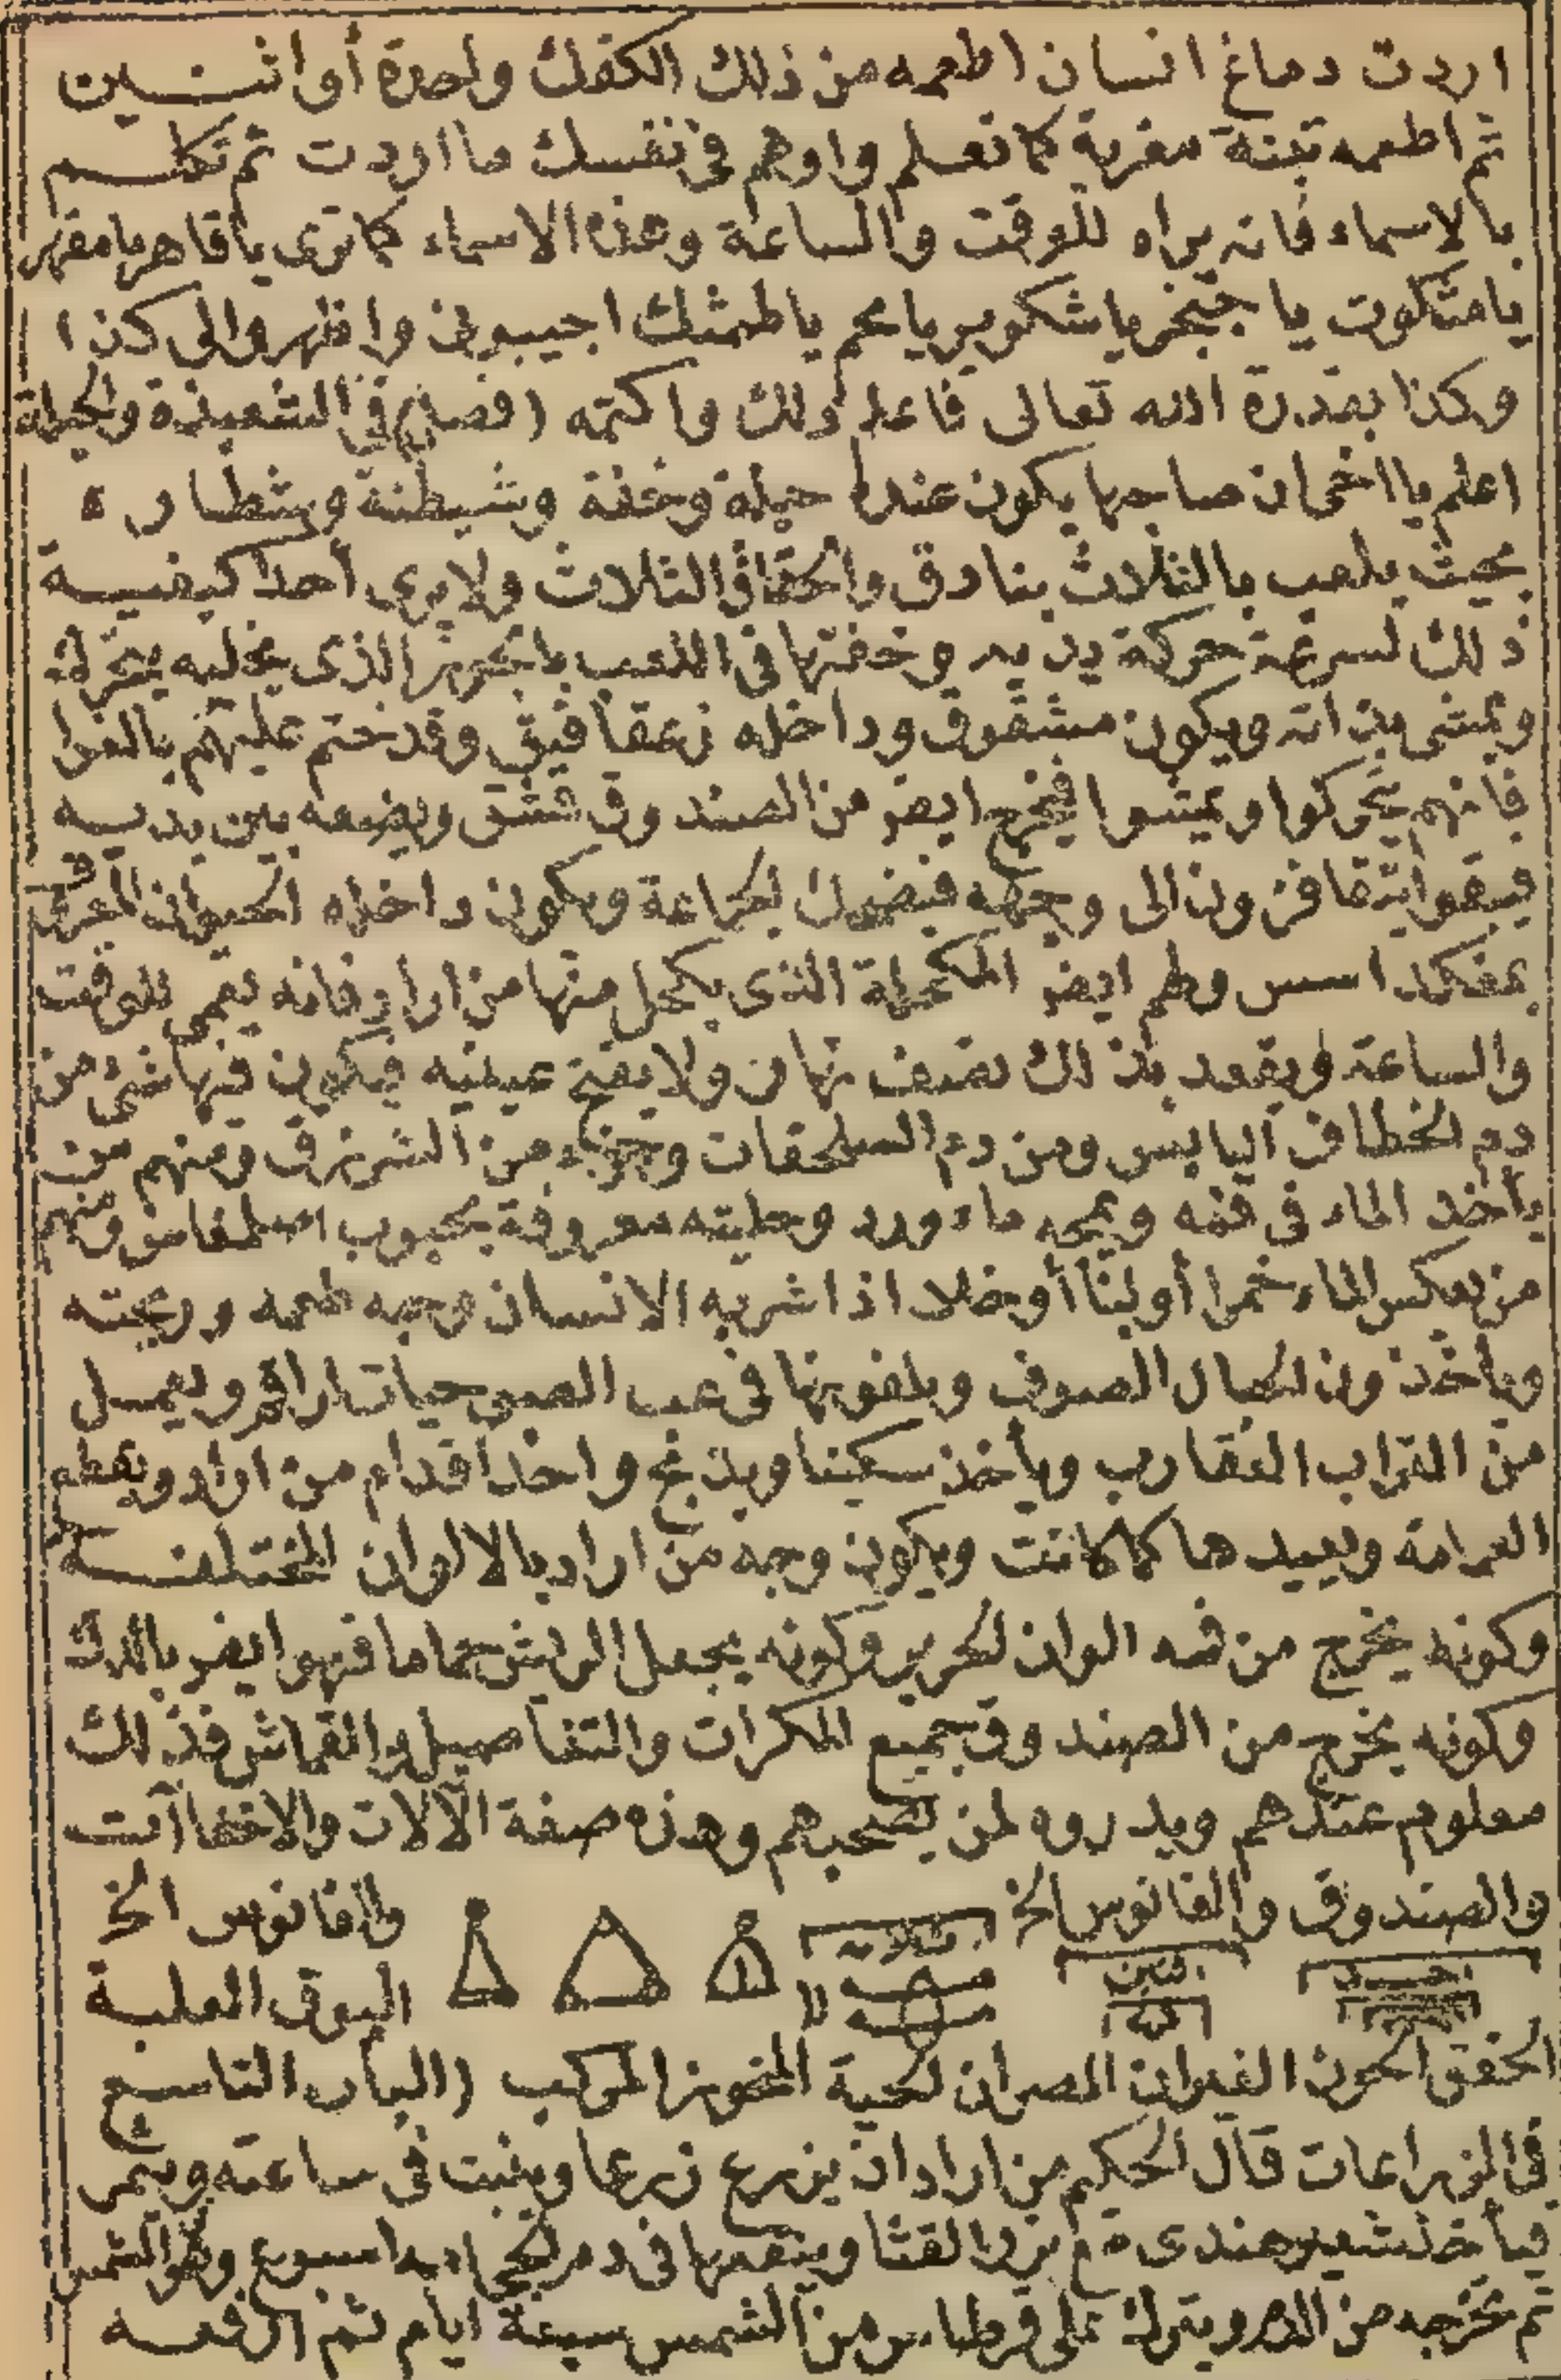 اردت دماغ انسان اطعمه من ذلك الكفك واحدة أو اثنـــين
ثم اطعمه تينة مغربة كما تعلم واوهم فى نفسك ما اردت ثم تكلـــم
بالاسماء فانه يراه للوقت والساعة وهذه الاسماء كما ترى ياقاهر يامقهر
يامتكوت يا جبخر ياشكوير يا عم يا طمثك اجيبونى واظهروا لى كذا
وكذا بقدرة الله تعالى فاعلم ذلك واكتمه (فصل) فى الشعبذة والحيلة
اعلم يا اخى ان صاحبها يكون عنده حيلة وخفة وشيطنة وشطاره
بحيث يلعب بالثلاث بنادق والحقاق الثلاث ولا يرى أحدا كيفيــة
ذلك لسرعة حركة يديه وخفتها فى اللعب بالجوز الذى يخليه يتحرك
ويمشى بذاته ويكون مشقوق وداخله زعقافيق وقد ختم عليهم بالغرا
فانهم يتحركوا ويمشوا فيخرج ايضر من الصندوق قشق ويضعه بين يديــه
فيبقوا يتقافزون الى وجهه فيضحك الجماعة ويكون داخله الحيوان المعروف
بمفكدا سس ولهم ايضر المكحلة الذى يكحل منها من اراد فانه يعمى للوقت
والساعة ويقعد بذلك نصف نهار ولا يفتح عينيه فيكون فيها شئ من
دم الخطاف اليابس ومن دم السلحفات وجزء من الشرنزق ومنهم من
يأخذ الماء فى فمه ويمجه ماء ورد وحليته معروفة بحبوب ومنهم
من يعكس الماء خمرا أو لبنا أو خلا اذا شربه الانسان وجد طعمه وريحته
ويأخذون الحبال الصوف ويلفونها فى عب الصبى حيات اراقم ويعمــل
من التراب العقارب ويأخذ سكينا ويذبح واحدا قدام من اراد ويقطع
العمامة ويعيدها كما كانت ويكون وجه من اراد بالالوان المختلفــة
وكونه يخرج من فمه الوان الحرير وكونه يجعل الريش حماما فهوا ايضر بالدك
وكونه يخرج من الصندوق جميع المكرات والتفاصيل والقماش فذلك
معلوم عندهم ويدروه لمن يصحبهم وهذه صفة الآلات والاخفاآت
والصندوق والفانوس الخ ثلاثة والفانوس الخ
ثنين البوق العلبة
الحقق الحوت الفيران المصران الحية المركب (الباب التاسع
فى الزراعات قال الحكيم من اراد ان يزرع زرعا وينبت فى ساعته ويثمر
فيأخذ شعير هندى مع بزر القثا وينقعها فى دم اسبوع وهو الشمس
ثم تخرجه من الدم ويترك على قرطاس من الشمس سبعة ايام ثم ارفعــه